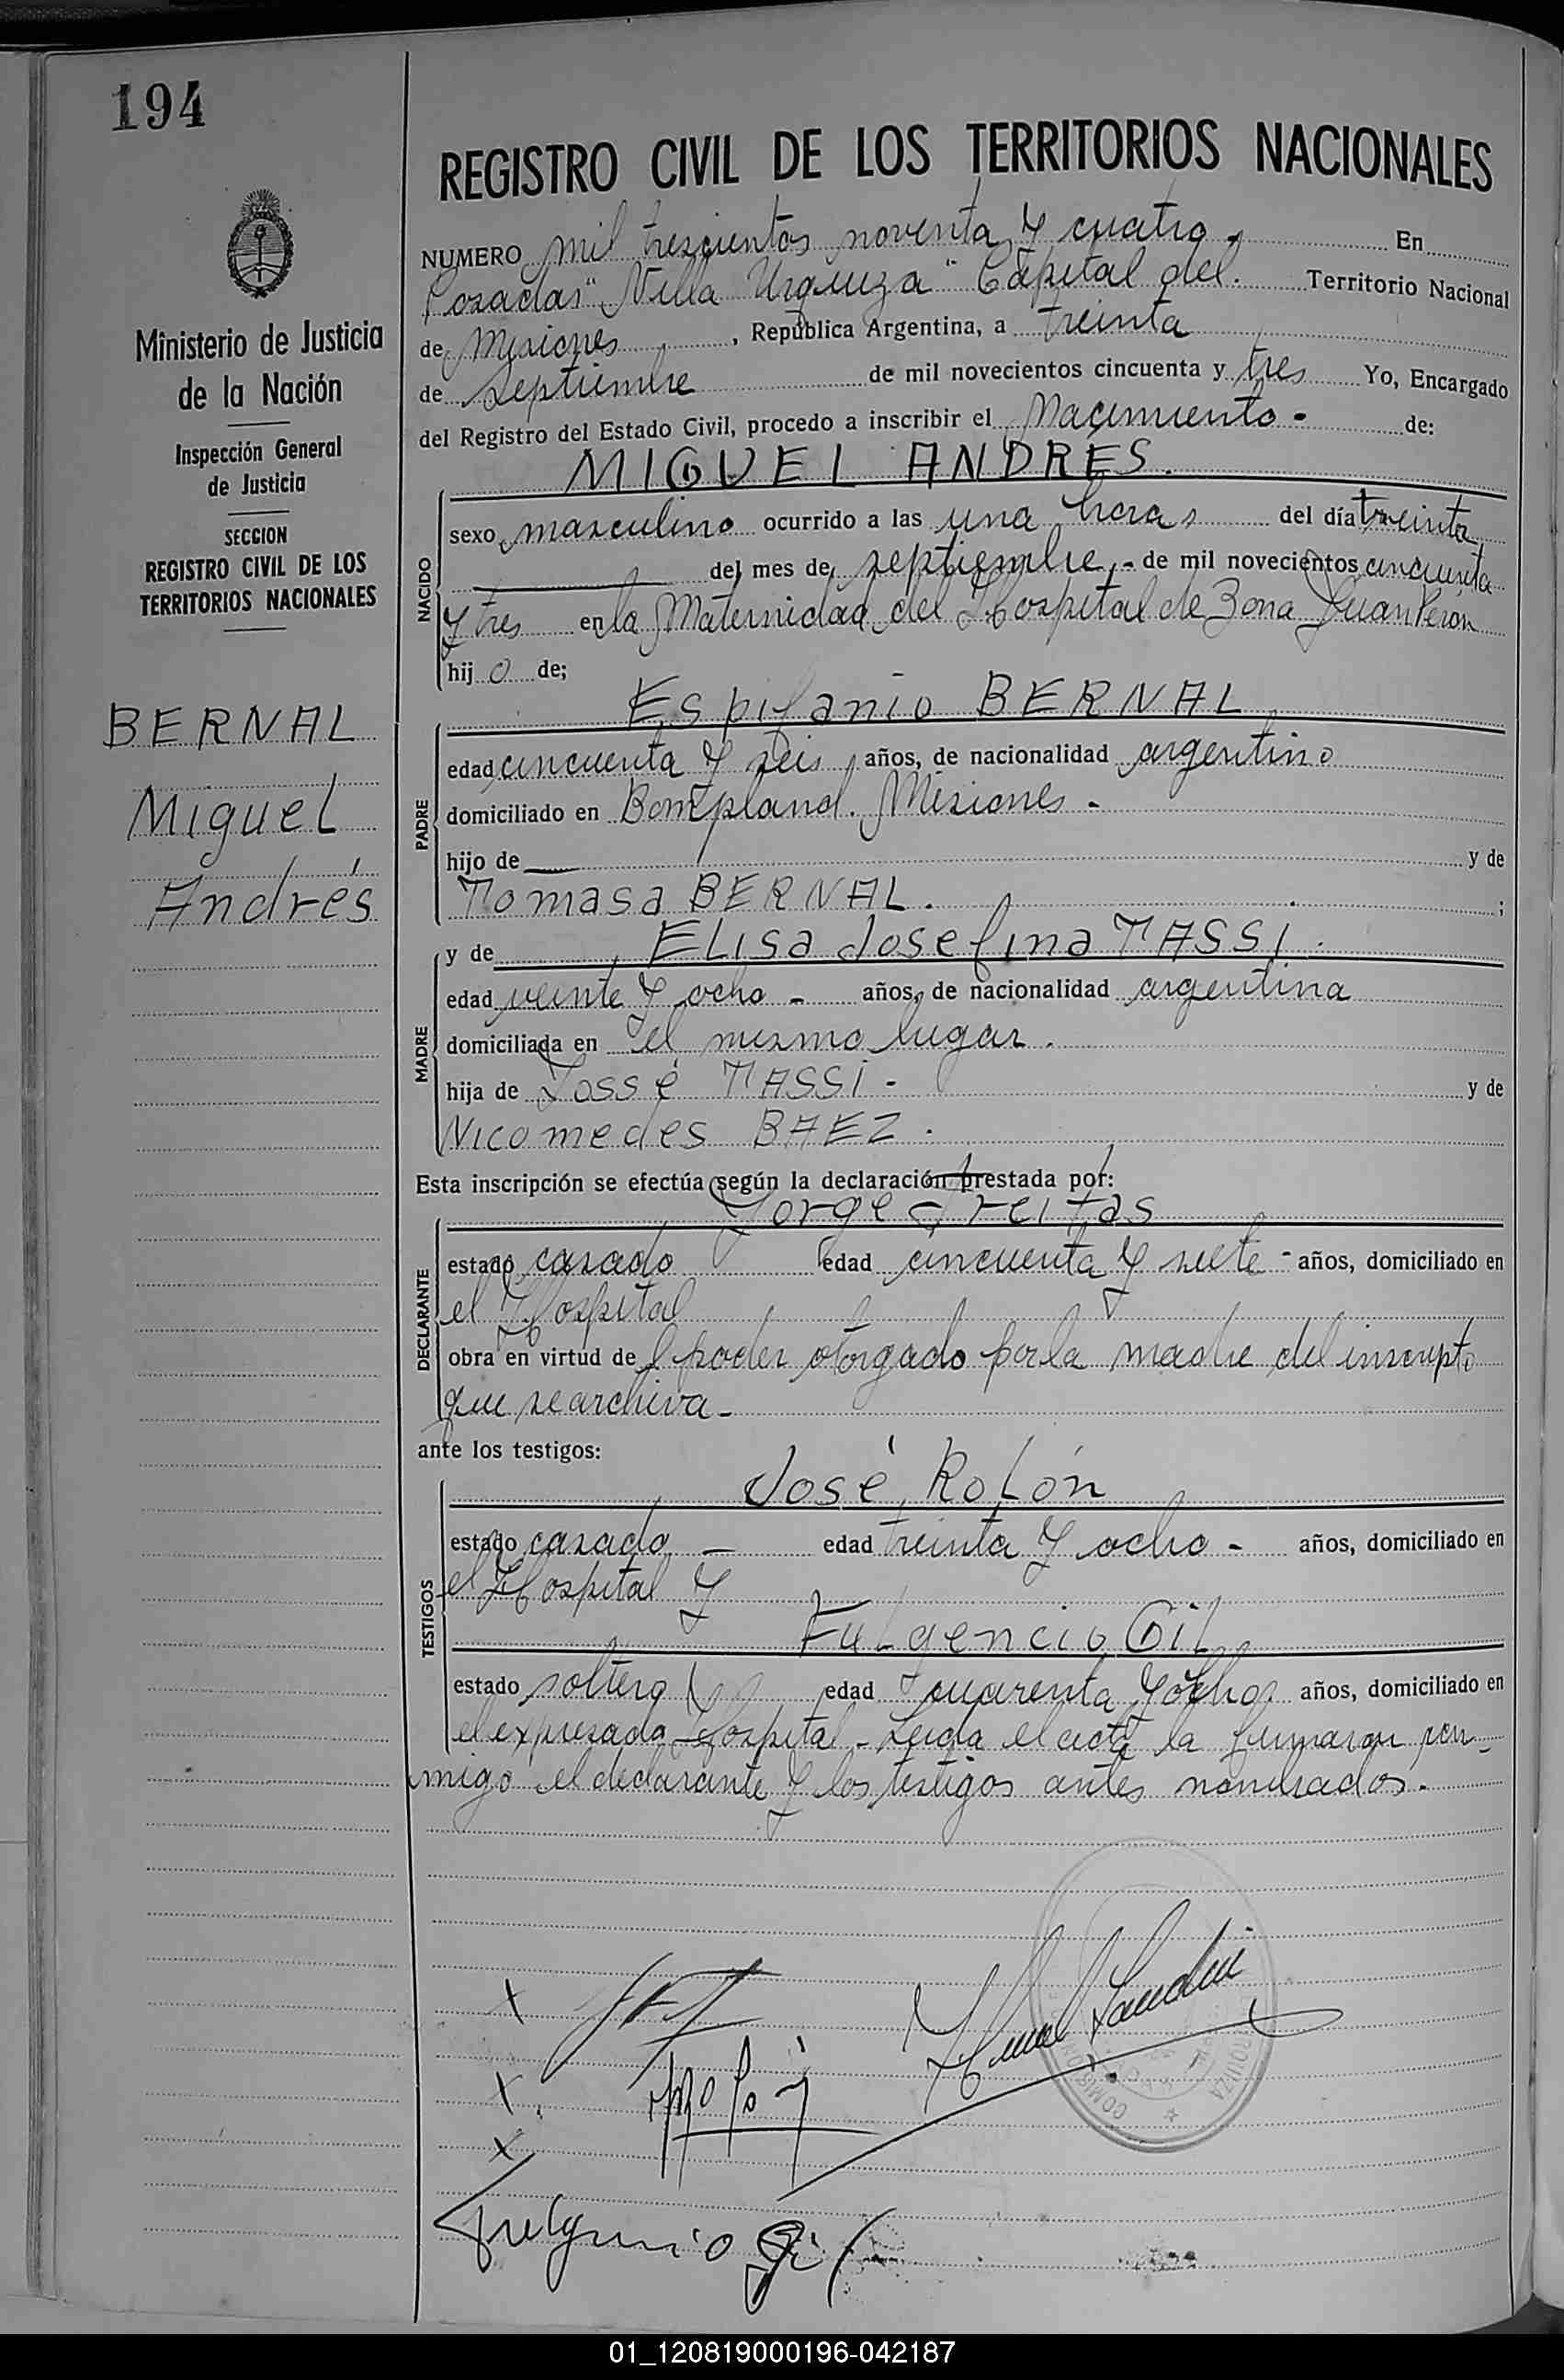 194
Ministerio de Justicia
de la Nación
Inspección General
de Justicia
SECCION
REGISTRO CIVIL DE LOS
TERRITORIOS NACIONALES
BERNAL
Miguel
Andrés
REGISTRO CIVIL DE LOS TERRITORIOS NACIONALES
NUMERO mil trescientos noventa y cuatro - En
Posadas "Villa Urquiza" Capital del. Territorio Nacional
de Misiones, República Argentina, a treinta
de septiembre de mil novecientos cincuenta y tres Yo, Encargado
del Registro del Estado Civil, procedo a inscribir el Nacimiento - de:
MIGUEL ANDRÉS.
NACIDO
sexo masculino ocurrido a las una horas del día treinta
del mes de septiembre, - de mil novecientos cincuenta
y tres en la Maternidad del Hospital de Zona Juan Perón
hijo de;
Espifanio BERNAL
PADRE
edad cincuenta y seis años, de nacionalidad argentino
domiciliado en Bompland. Misiones -
hijo de y de
Tomasa BERNAL. ;
MADRE
y de ELisa Josefina TASSI.
edad veinte y ocho - años, de nacionalidad argentina
domiciliada en el mismo lugar.
hija de Jossé TASSI - y de
Nicomedes BAEZ.
Esta inscripción se efectúa según la declaración prestada por:
Jorge Freitas
DECLARANTE
estado casado edad cincuenta y siete - años, domiciliado en
el Hospital
obra en virtud del poder otorgado por la madre del inscripto
que se archiva -
ante los testigos:
José RoLón
TESTIGOS
estado casado - edad treinta y ocho - años, domiciliado en
el Hospital y
FuLgencio GiL
estado soltero edad cuarenta y ocho años, domiciliado en
el expresado Hospital - Leída el acta la firmaron con-
migo el declarante y los testigos antes nombrados.
X
X
X
Fulgencio Gil
COMISION URQUIZA
01_120819000196-042187